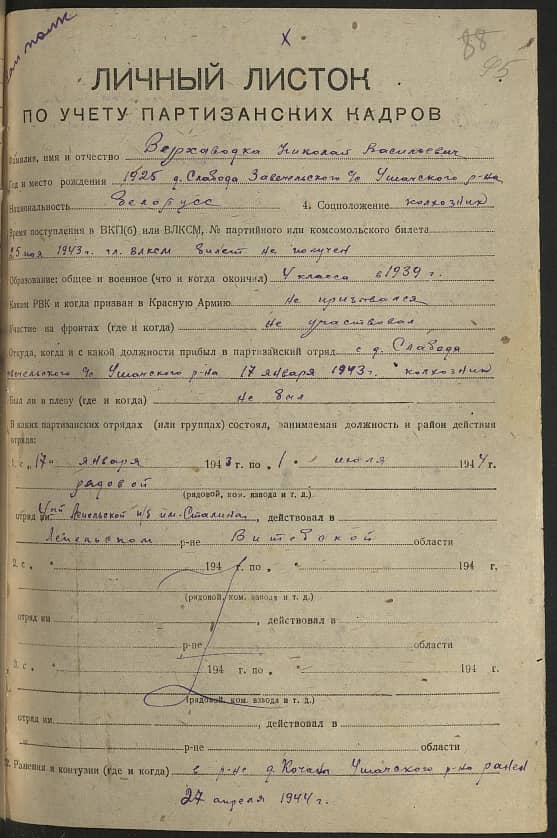 X
88
95
ЛИЧНЫЙ ЛИСТОК
ПО УЧЕТУ ПАРТИЗАНСКИХ КАДРОВ
Фамилия, имя и отчество Верхаводка Николай Васильевич
Год и место рождения 1925 д. Слабода Завечельского с/с Ушачского р-на
Национальность белорусс 4. Соцположение колхозник
Время поступления в ВКП(б) или ВЛКСМ, № партийного или комсомольского билета
25 мая 1943 г. чл. ВЛКСМ билет не получен
Образование: общее и военное (что и когда окончил) 4 класса в 1939 г.
Каким РВК и когда призван в Красную Армию не призывался
Участие на фронтах (где и когда) не участвовал
Откуда, когда и с какой должности прибыл в партизанский отряд с д. Слабода
Завечельского с/с Ушачского р-на 17 января 1943 г. колхозник
Был ли в плену (где и когда) не был
В каких партизанских отрядах (или группах) состоял, занимаемая должность и район действия
отряда:
1. с „17" января 1943 г. по „1" июля 1944 г.
рядовой
(рядовой, ком. взвода и т. д.)
отряд им. 4й Лепельской п/б им. Сталина, действовал в
Лепельском р-не Витебской области
2. с „ " 194 г. по „ " 194 г.
(рядовой, ком. взвода и т. д.)
отряд им. , действовал в
р-не области
3. с „ " 194 г. по „ " 194 г.
(рядовой, ком. взвода и т. д.)
отряд им. , действовал в
р-не области
Ранения и контузии (где и когда) в р-не д. Кочаны Ушачского р-на ранен
27 апреля 1944 г.